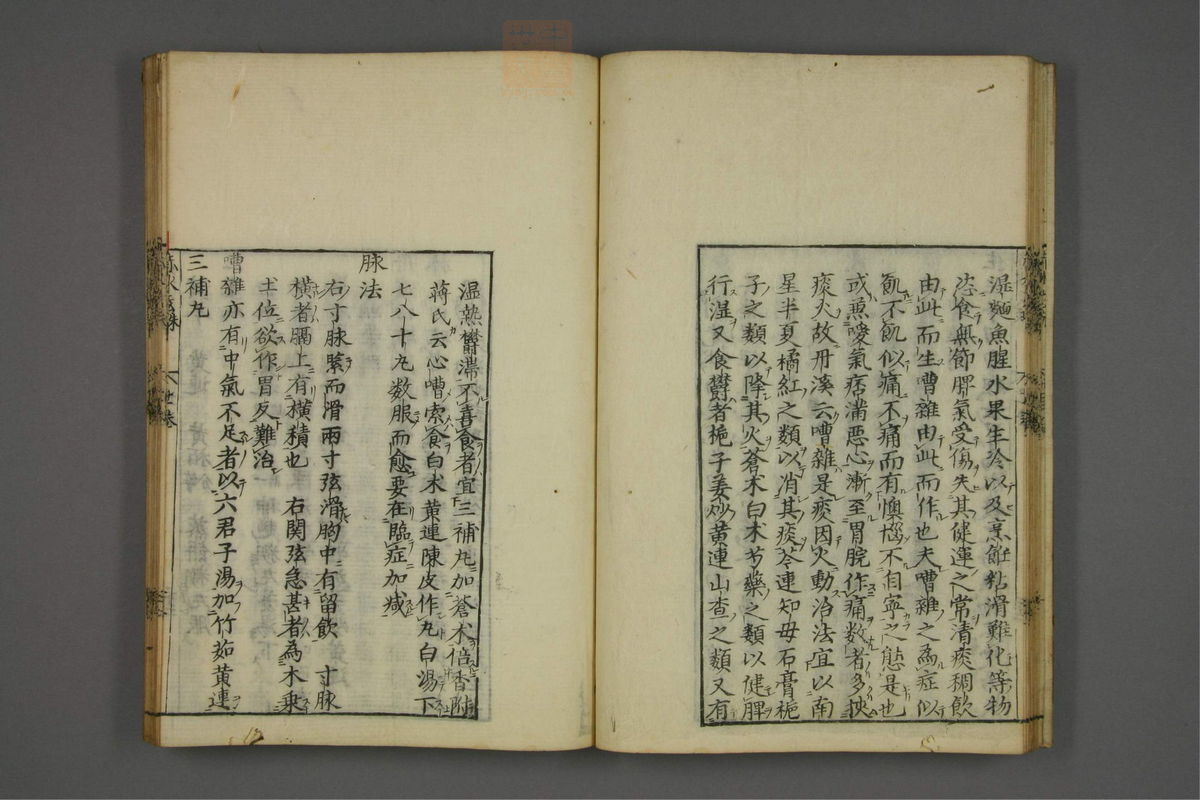 湿麵魚腥水果生冷以及烹飪粘滑難化等物
恣食無節脾氣受傷失其健運之常清痰稠飲
由此而生嘈雜由此而作也夫嘈雜之為症似
飢不飢似痛不痛而有懊憹不自寧之態是也
或兼噯氣痞満惡心漸至胃脘作痛数者多挾
痰火故丹溪云嘈雜是痰因火動治法宜以南
星半夏橘紅之類以消其痰芩連知毋石膏梔
子之類以降其火蒼朮白朮芍藥之類以健脾
行湿又食欝者梔子姜炒黄連山査之類又有
湿熱欝滯不喜食者宜三補丸加蒼朮倍香附
蒋氏云心嘈索食白朮黄連陳皮作丸白湯下
七八十丸数服而愈要在臨症加减
脉法
右寸脉緊而滑兩寸弦滑胸中有留飲 寸脉
横者膈上有横積也 右関弦急甚者為木乗
土位欲作胃反難治
嘈雜亦有中氣不足者以六君子湯加竹茹黄連
三補丸